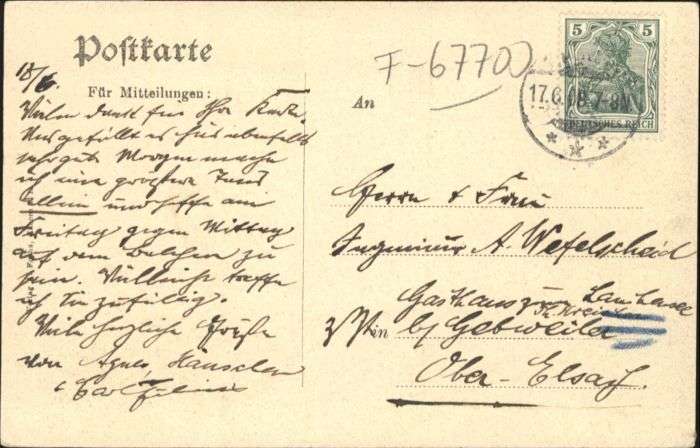 Postkarte
F-67700
18/6.
Für Mitteilungen:
An
5 5
17.6.08.7-8N
DEUTSCHES REICH
Vielen Dank für Ihre Karte.
Uns gefällt es hier ebenfalls
sehr gut. Morgen mache
ich eine größere Tour
allein und hoffe am
Freitag gegen Mittag
auf dem Belchen zu
sein. Vielleicht treffe
ich Sie zufällig.
Viele herzliche Grüße
von Agnes, Hänschen
Herrn & Frau
Ingenieur A. Wefelscheid
Gasthaus zum
b/ Gebweiler
Ober-Elsaß.